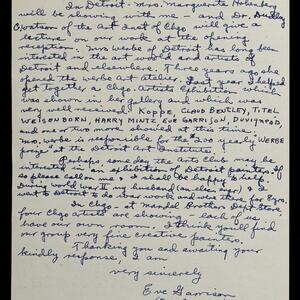 In Detroit - Mrs. Marguerite Hohenberg
will be showing with me - and Dr. Dudley
Watson of the Art Inst. of Chgo will give a
lecture on our work at the opening
reception. Mrs. Werbe of Detroit has long been
interested in the art world and artists of
Detroit and elsewhere. Three years ago she
opened the Werbe Art Atelier. Last year I helped
get together a Chgo. Artists Exhibition which
was shown in her gallery and which was
very well received. Koppe, CLAUD BENTLEY, TITEL,
WEISENBORN, HARRY MINTZ, EVE GARRISON,
and one or two more, showed at this time.
Mrs. Werbe is responsible for the $200 yearly WERBE
prize at the Detroit Art Institute.
Perhaps, some day the Arts Club may be
interested in an exhibition of Detroit painters. If
so please call me & I shall be happy to help.
During World War II my husband (an eng.) & I
went to Detroit to do war work and was there for 2 yrs.
In Chgo. - at Mandel Brothers Dept. Store,
four Chgo artists are showing - each of us
have our own room. I think you'll find
our group very fine creative painters.
Thanking you and awaiting your
kindly response, I am
very sincerely
Eve Garrison